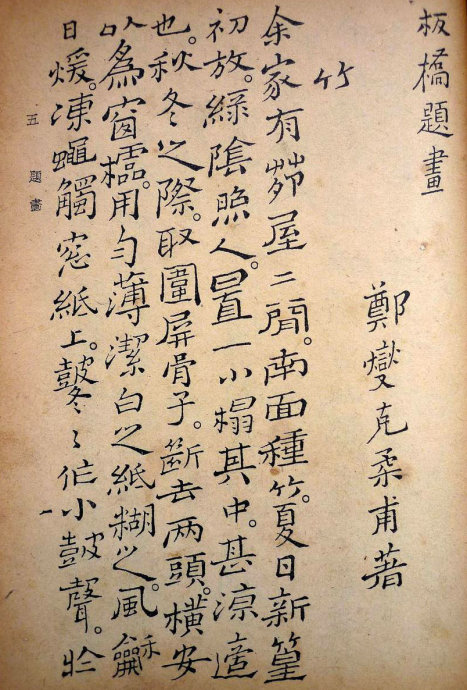 板橋題畫
鄭燮克柔甫著
竹
余家有茆屋二間。南面種竹。夏日新篁
初放。綠陰照人。置一小榻其中。甚涼適
也。秋冬之際。取圍屏骨子。斷去兩頭。橫安
以為窗櫺。用勻薄潔白之紙糊之。風龢
日煖。凍蠅觸窗紙上。鼕〻作小鼓聲。於
五 題畫